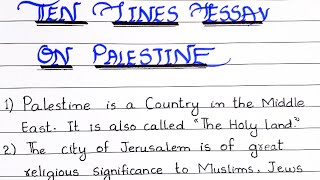 TEN LINES ESSAY
ON PALESTINE
1) Palestine is a Country in the Middle
East. It is also called "The Holy land."
2) The city of Jerusalem is of great
religious significance to Muslims, Jews